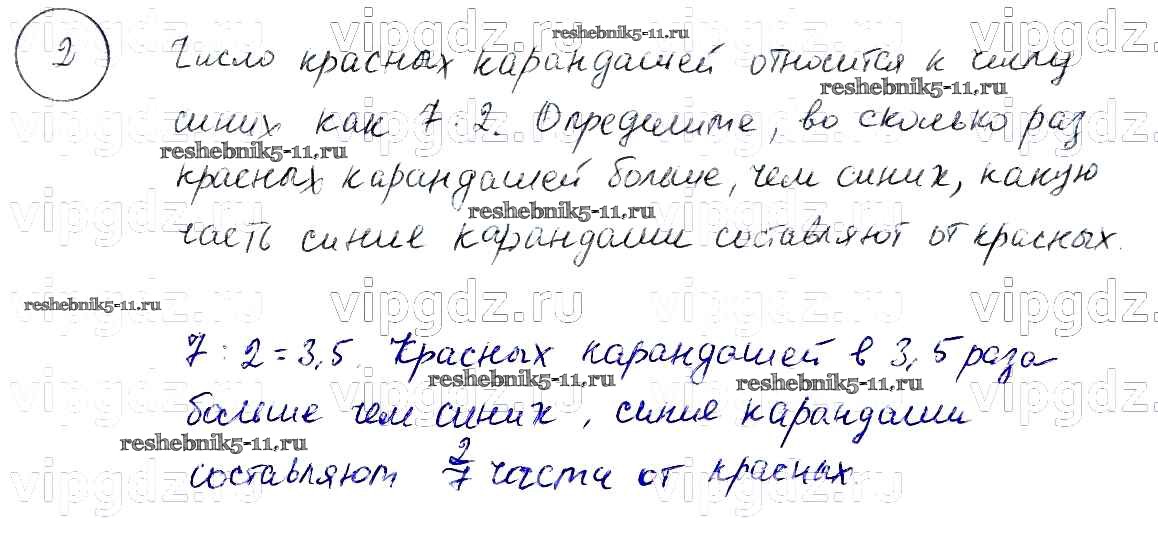 2
Число красных карандашей относится к числу
синих как 7 2. Определите, во сколько раз
красных карандашей больше, чем синих, какую
часть синие карандаши составляют от красных.
7 : 2 = 3,5. Красных карандашей в 3,5 раза
больше чем синих, синие карандаши
составляют 2/7 части от красных.
vipgdz.ru
reshebnik5-11.ru